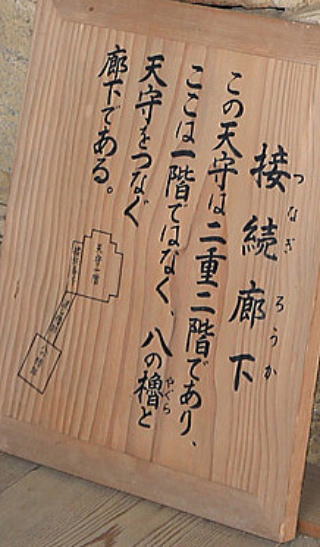 接続廊下
つなぎ ろうか
この天守は二重二階であり、
ここは一階ではなく、八の櫓と
やぐら
天守をつなぐ
廊下である。
天守一階